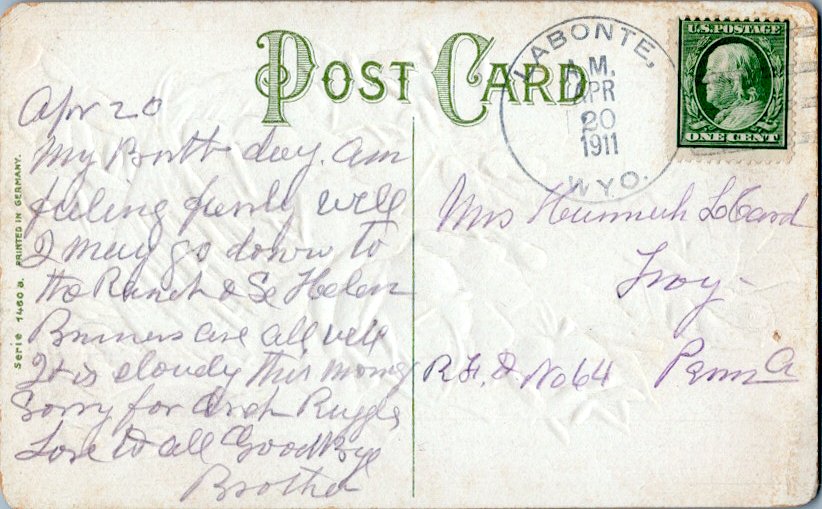 POST CARD
LABONTE,
A.M.
APR
20
1911
WYO.
U.S. POSTAGE
ONE CENT
Serie 1460 a. PRINTED IN GERMANY.
Apr 20
My Birth day. Am
feeling fairly well
I may go down to
the Ranch & Se Helen
are all well
It is cloudy this morng
Sorry for Arch Ruggls
Love to all Good Bye
Brother
Mrs
Troy
R.F.D. No 64 Penn a